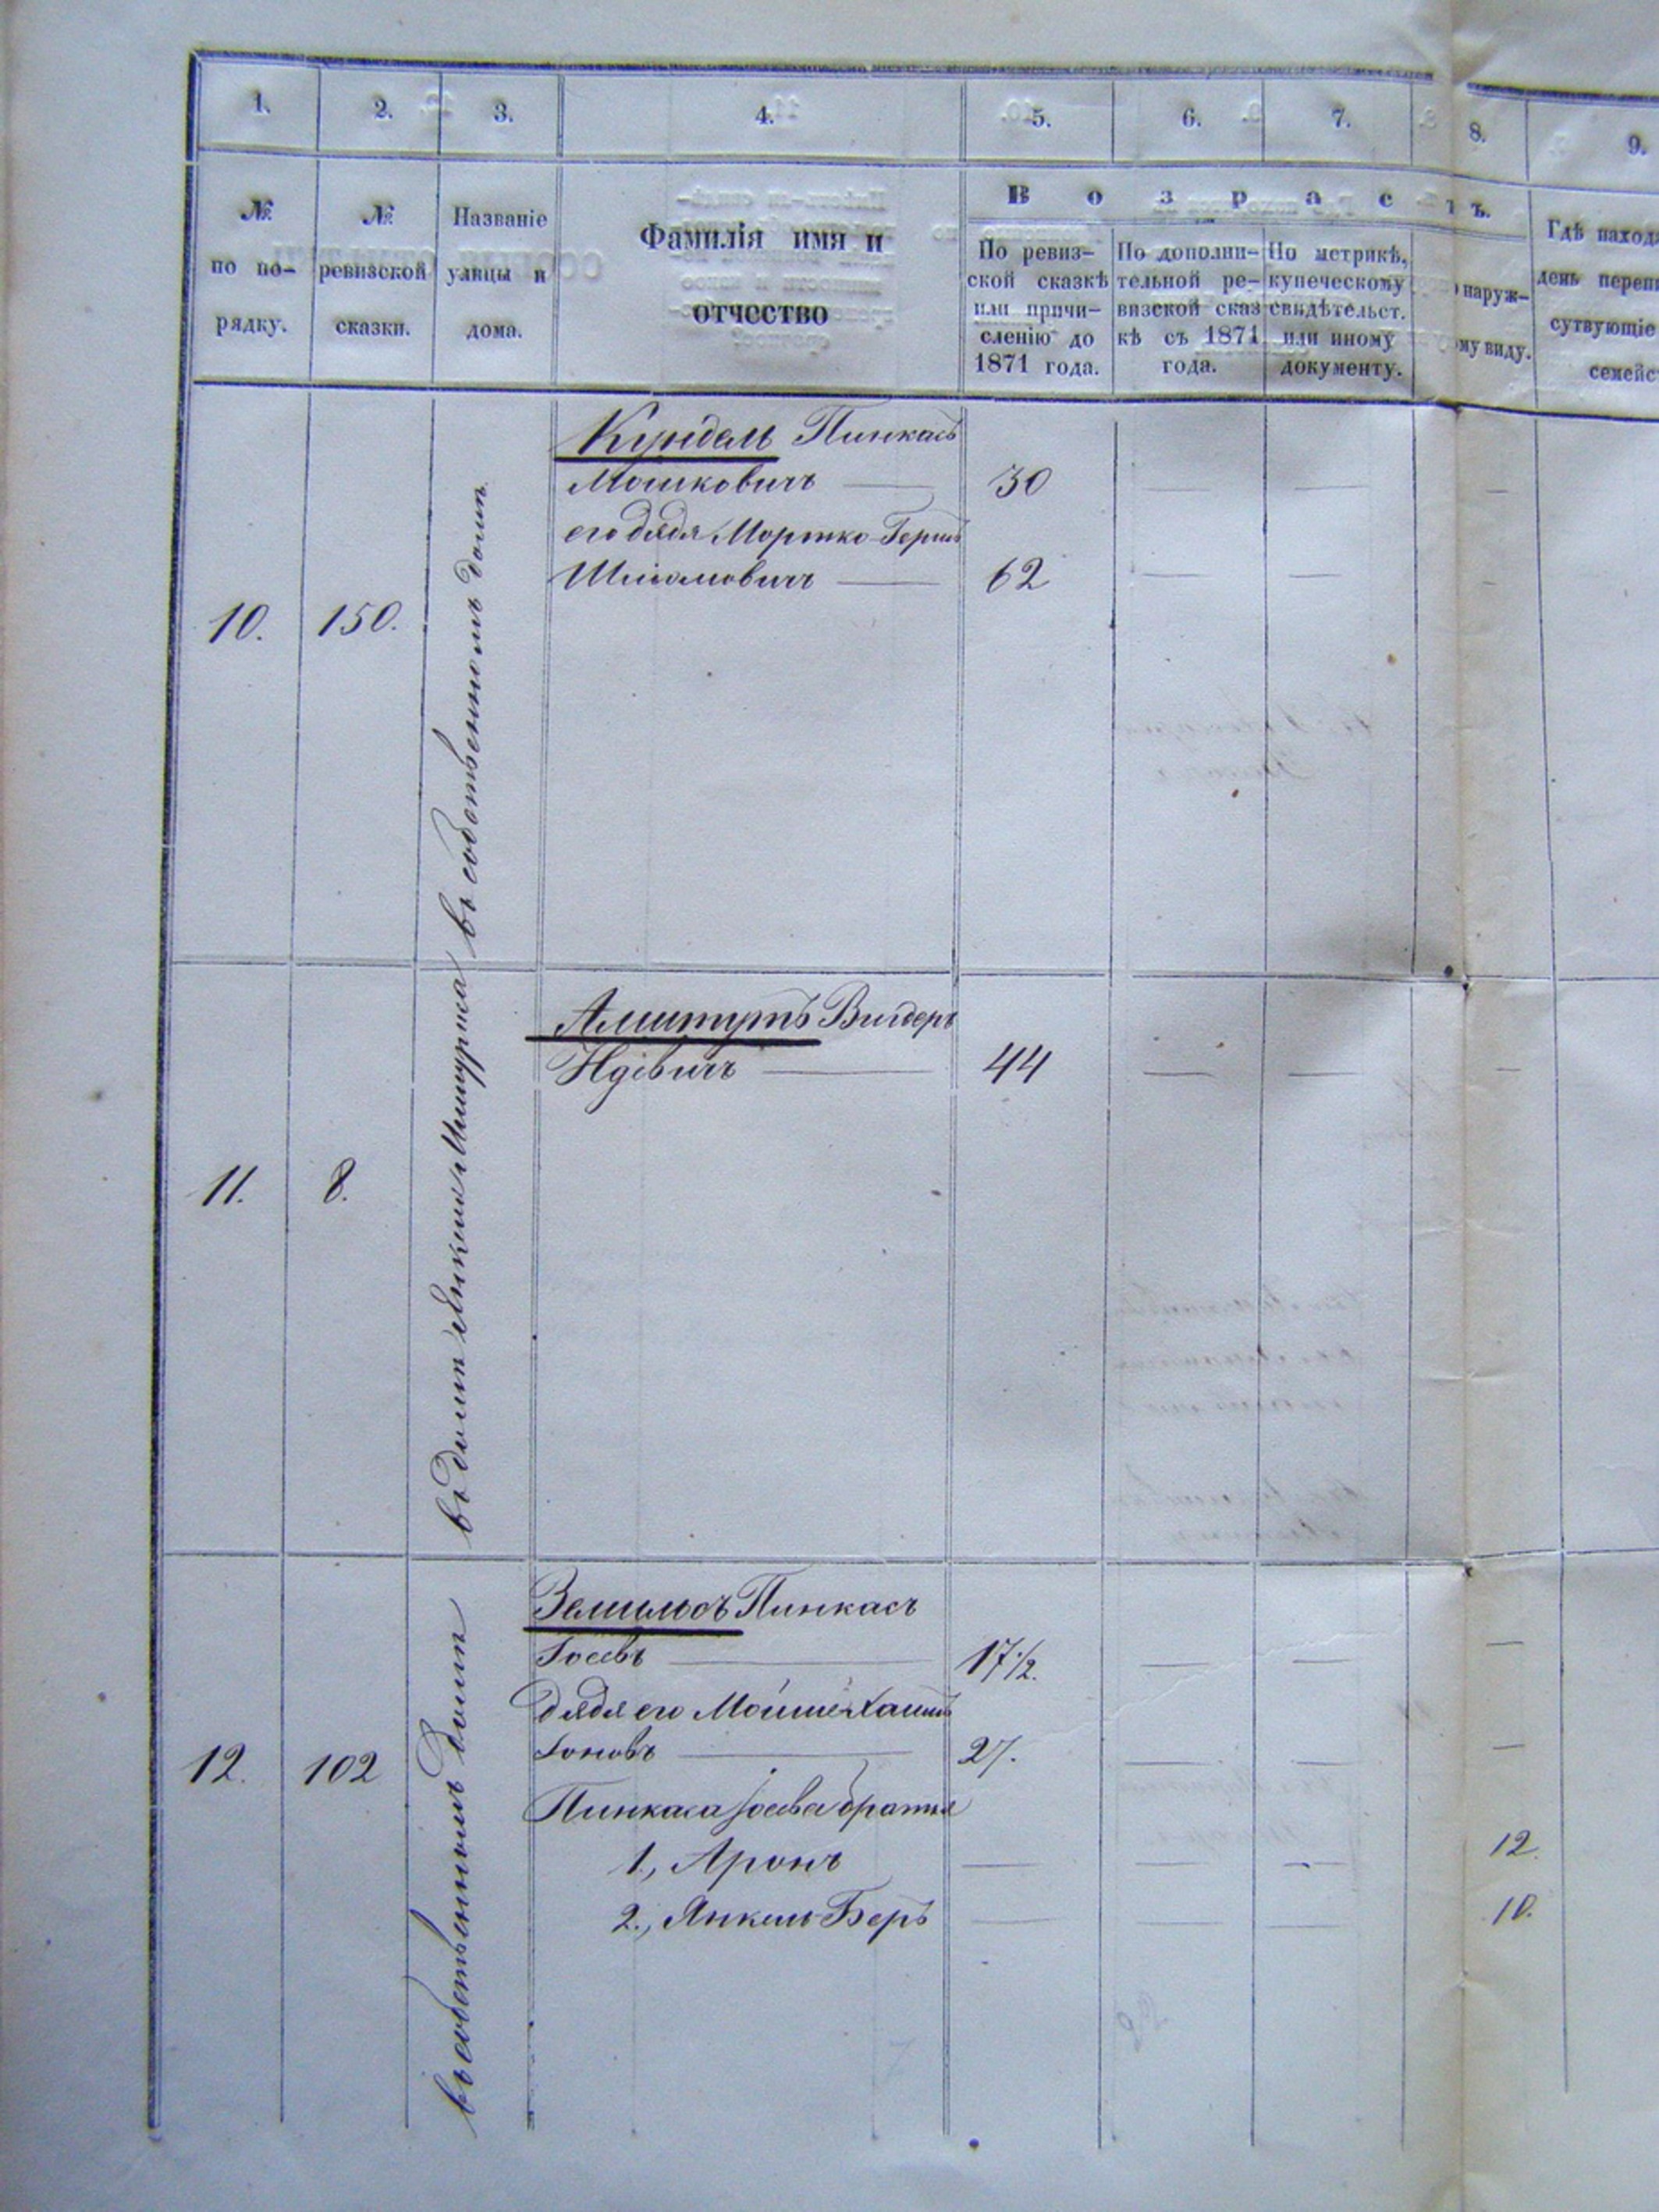 1. 2. 3. 4. 5. 6. 7. 8. 9.
№ по по- рядку.
№ ревизской сказки.
Названіе улицы и дома.
Фамилія имя и
отчество
Возрастъ.
По ревиз-
ской сказкѣ
или причи-
сленію до
1871 года.
По дополни-
тельной ре-
визской сказ
кѣ съ 1871
года.
По метрикѣ,
купеческому
свидѣтельст.
или иному
документу.
наруж-
ому виду.
Гдѣ наход
день переп
сутвующіе
семейс
10. 150.
въ собственномъ домѣ
Кундель Пинкасъ
Мошковичъ — 30 — — —
его дядя Мортко-Гершъ
Шліомовичъ — 62 — — —
11. 8.
въ домѣ Янкеля
Амитутъ Вигдеръ
— 44 — — —
12. 102
въ собственномъ домѣ
Зелильсъ Пинкасъ
Іосевъ — 17 1/2. — — —
дядя его Мойше-Хаимъ
Іоновъ — 27. — — —
Пинкаса Іосева братья
1., Аронъ — — — 12.
2., Янкель-Беръ — — — 10.